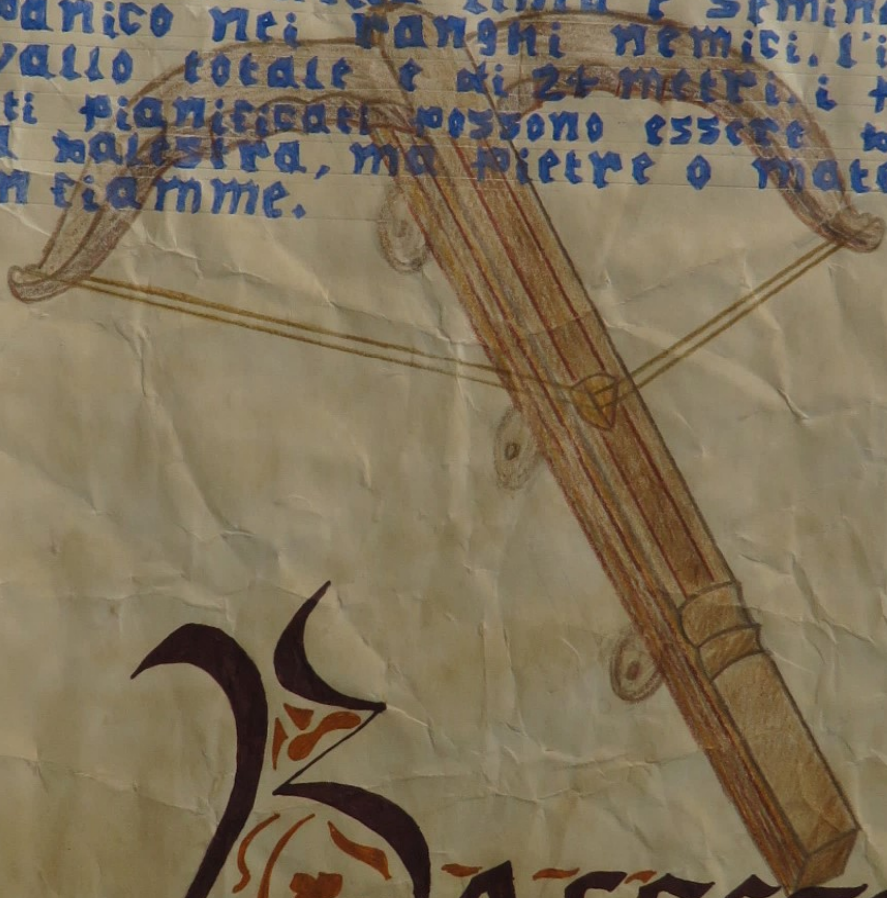 panico nei ranghi nemici. l'i
vallo totale e di 24 metri. i
ti pianificati possono essere
balestra, ma pietre o mate
n fiamme.